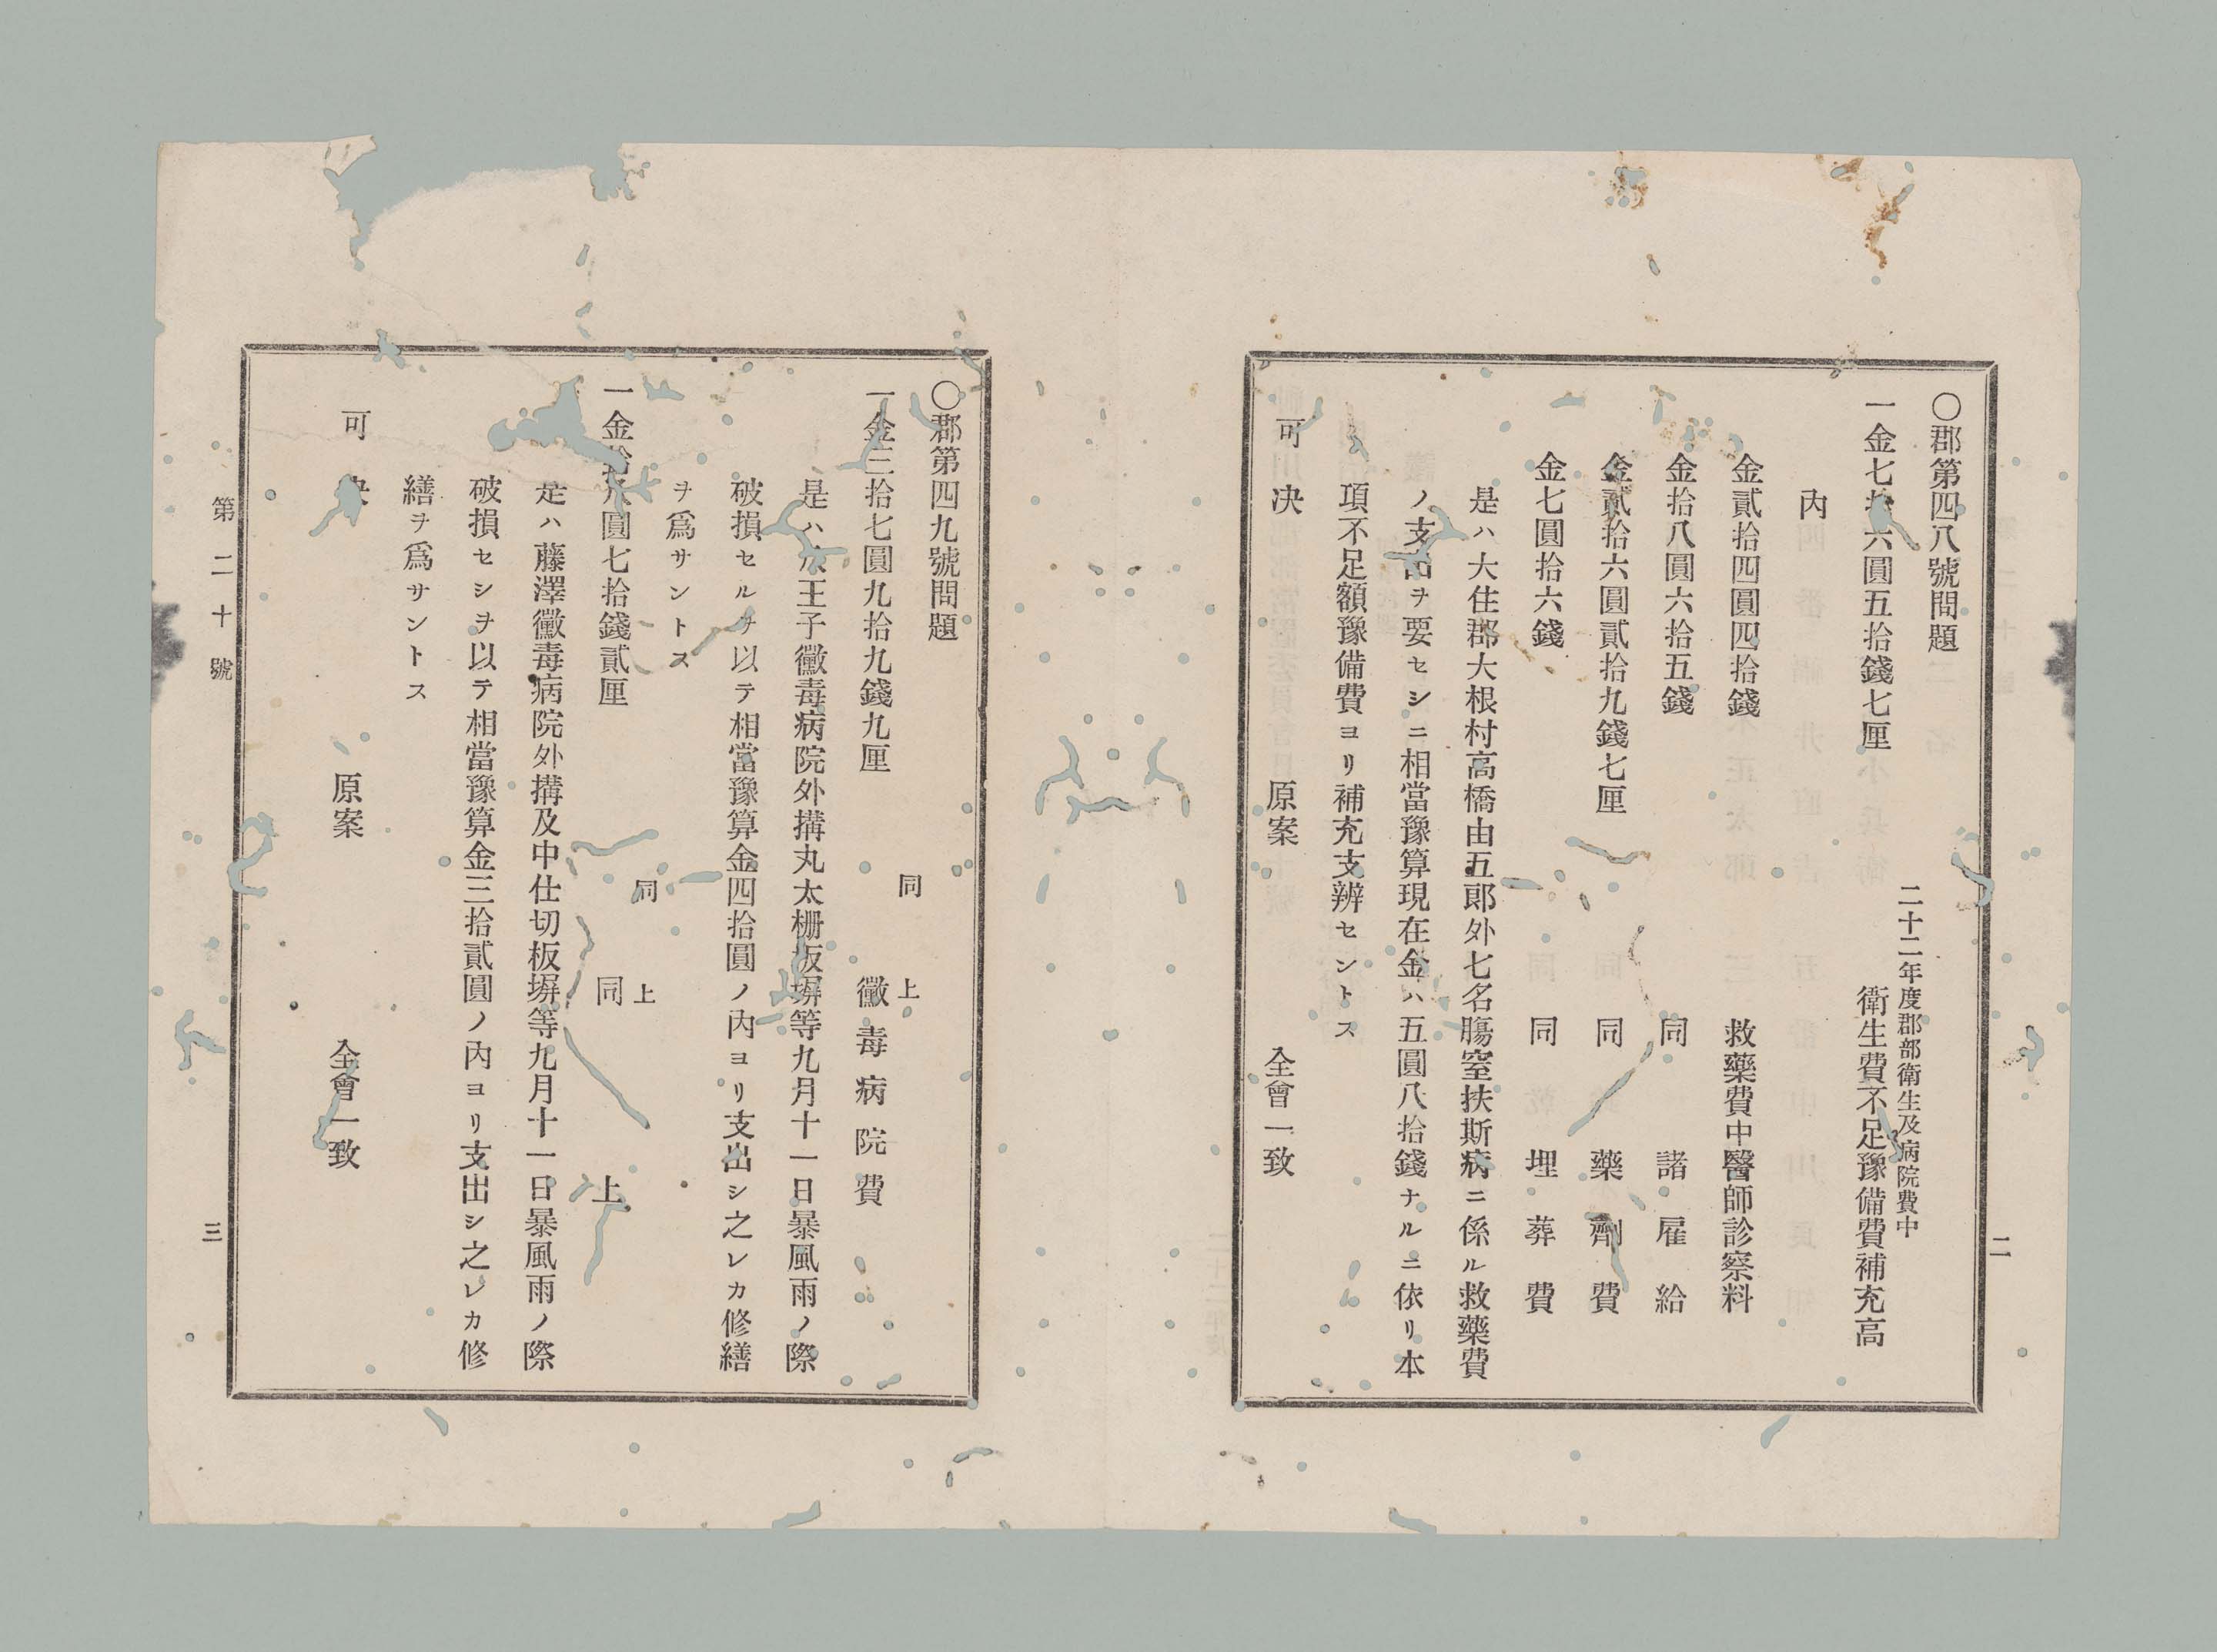 〇郡第四八號問題
二十二年度郡部衛生及病院費中
一金七拾六圓五拾錢七厘　衛生費不足豫備費補充高
內
金貳拾四圓四拾錢　救藥費中醫師診察料
金拾八圓六拾五錢　同　諸雇給
金貳拾六圓貳拾九錢七厘　同　藥劑費
金七圓拾六錢　同　埋葬費
是ハ大住郡大根村高橋由五郞外七名膓窒扶斯病ニ係ル救藥費
ノ支出ヲ要セシニ相當豫算現在金ハ五圓八拾錢ナルニ依リ本
項不足額豫備費ヨリ補充支辨セントス
可決　原案　全會一致
二
〇郡第四九號問題
同上
一金三拾七圓九拾九錢九厘　黴毒病院費
是ハ八王子黴毒病院外搆丸太柵板塀等九月十一日暴風雨ノ際
破損セルヲ以テ相當豫算金四拾圓ノ內ヨリ支出シ之レカ修繕
ヲ爲サントス
同上
一金拾圓七拾錢貳厘　同上
是ハ藤澤黴毒病院外搆及中仕切板塀等九月十一日暴風雨ノ際
破損セシヲ以テ相當豫算金三拾貳圓ノ內ヨリ支出シ之レカ修
繕ヲ爲サントス
可決　原案　全會一致
第二十號　三